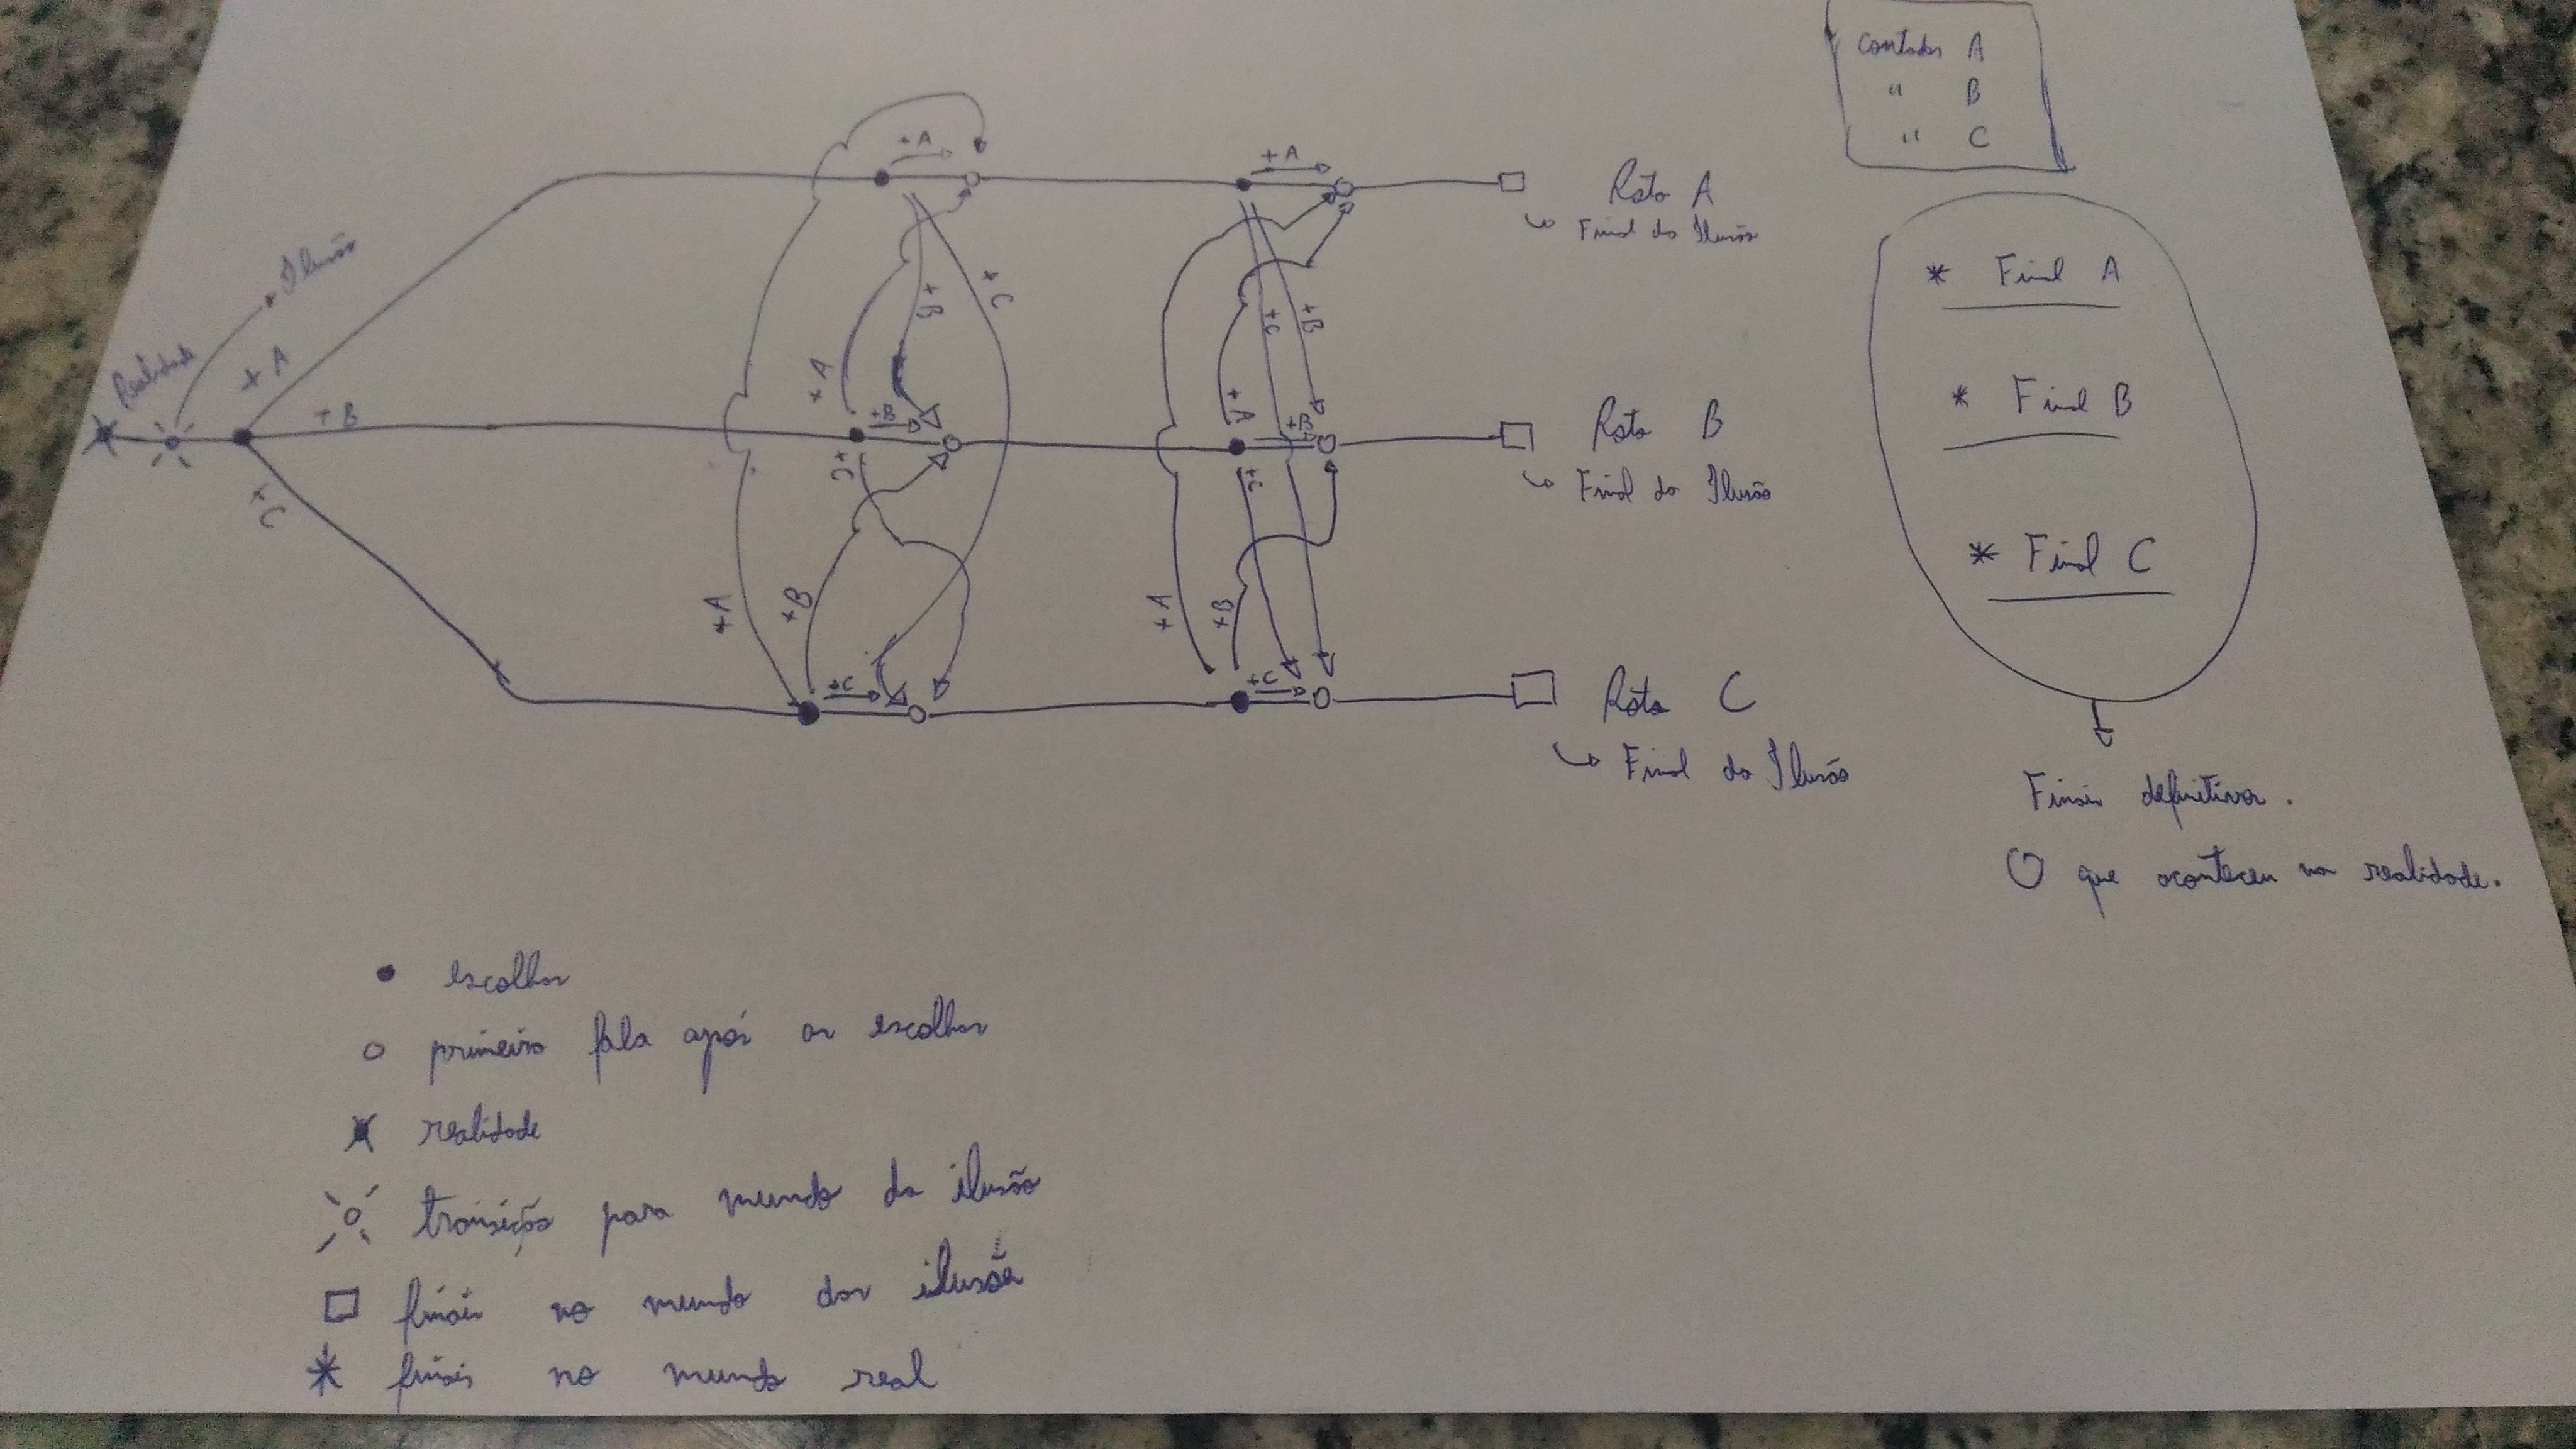 Contador A
" B
" C
+A
+A
Rota A
↳ Final da Ilusão
Ilusão
Realidade
+A
+B
+C
+B
+C
+C
+B
+A
+B
+C
+A
+B
+C
Rota B
↳ Final da Ilusão
+A
+B
+A
+B
+C
+C
Rota C
↳ Final da Ilusão
* Final A
* Final B
* Final C
Finais definitivos.
O que aconteceu na realidade.
escolhas
primeira fala após as escolhas
realidade
transição para mundo da ilusão
finais no mundo das ilusão
* finais no mundo real